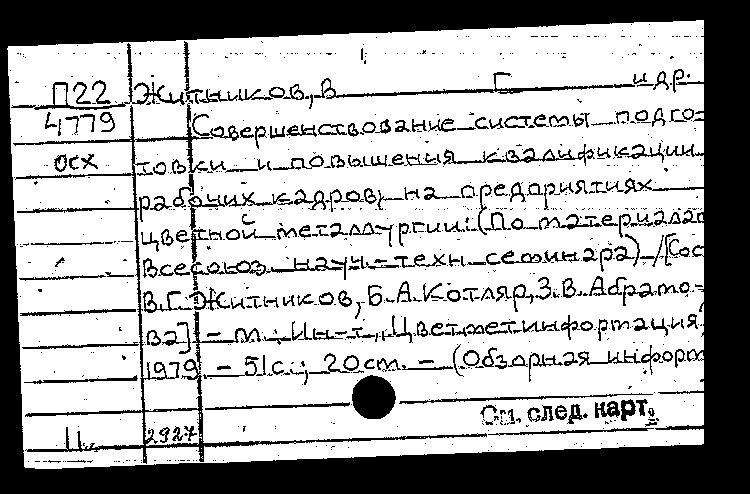 П22 Житников, В Г и др.
4779 Совершенствование системы подго-
осх товки и повышения квалификации
рабочих кадров на предприятиях
цветной металлургии: (По материалам
Всесоюз. науч-техн семинара) /[Сос
В.Г. Житников, Б.А. Котляр, З.В. Абрамо-
ва] - М.: Ин-т "Цветметинформация",
1979 - 51с.; 20см. - (Обзорная информ
См. след. карт.
2927